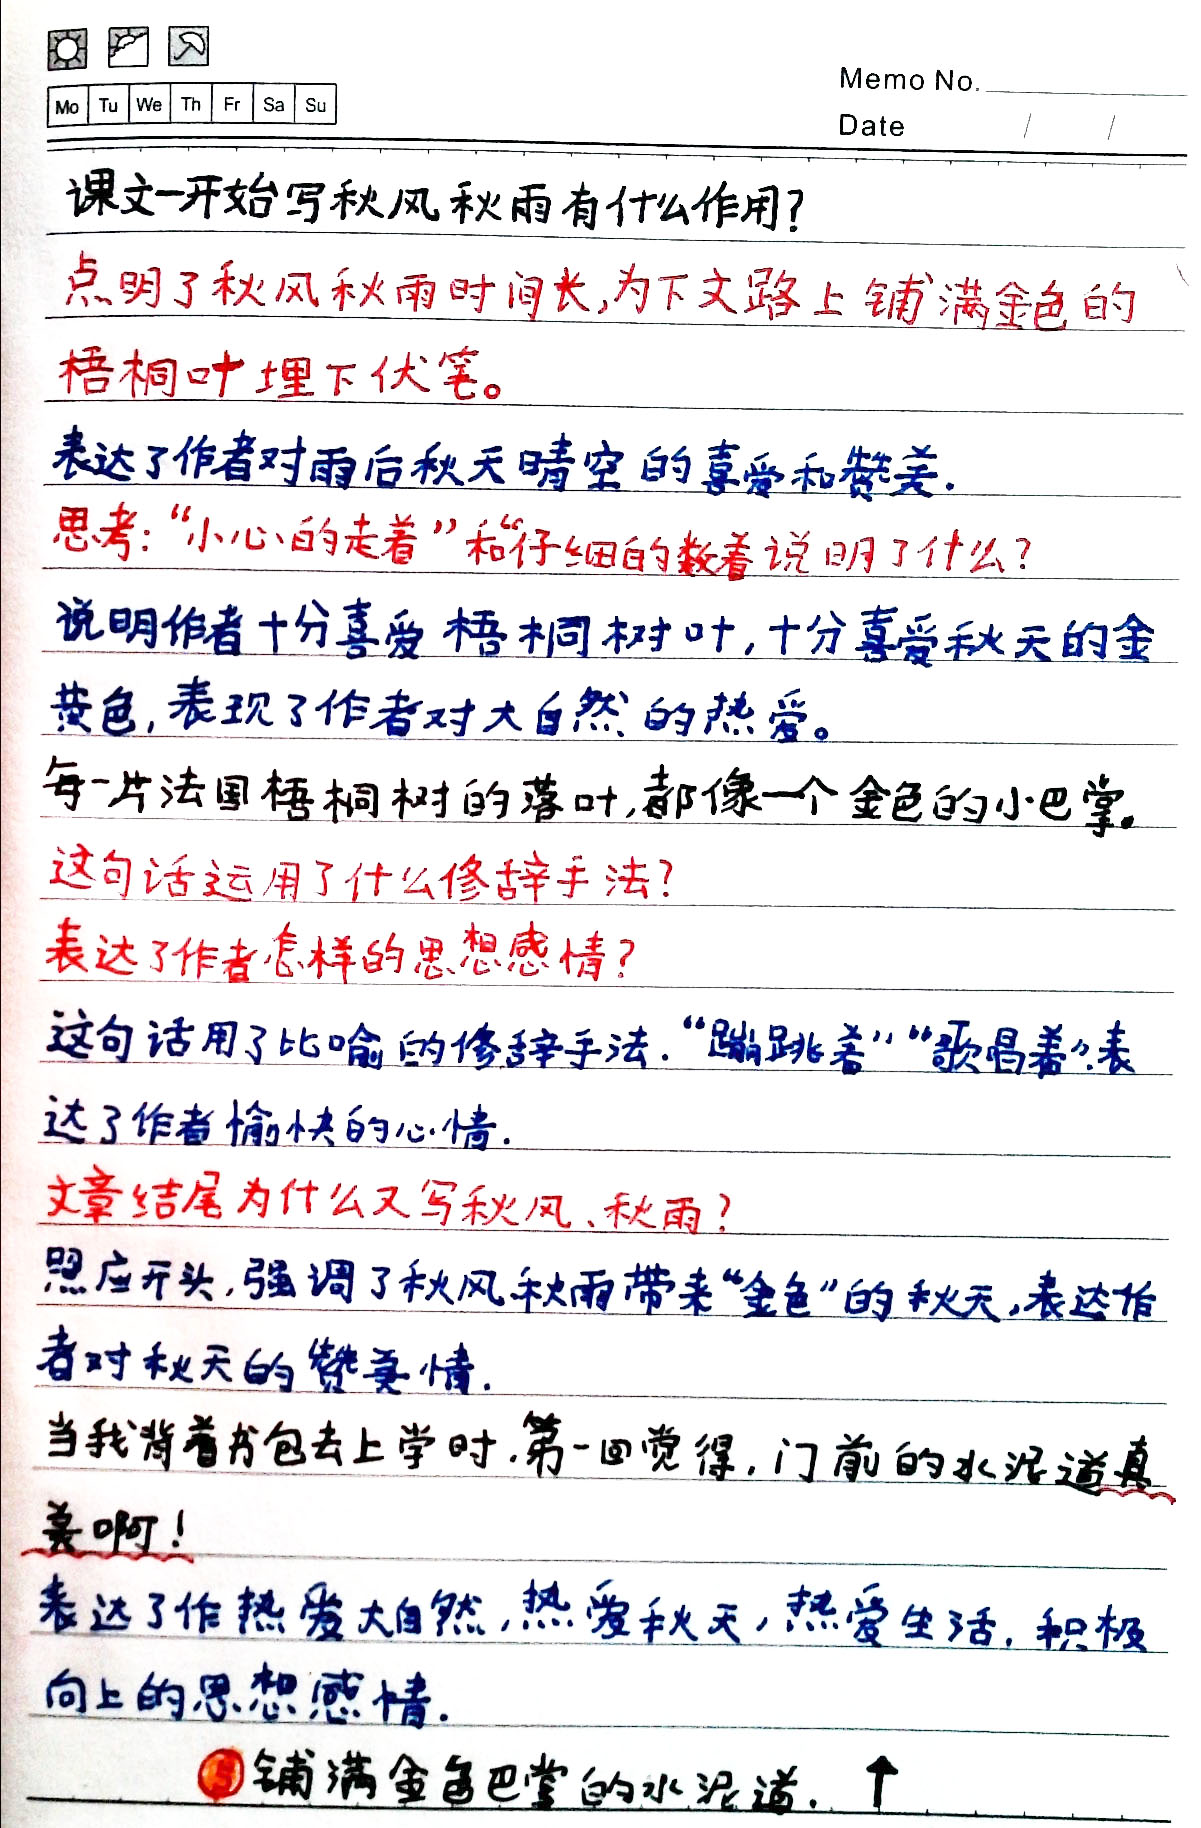 Mo Tu We Th Fr Sa Su
Memo No.
Date / /
课文一开始写秋风秋雨有什么作用?
点明了秋风秋雨时间长,为下文路上铺满金色的
梧桐叶埋下伏笔。
表达了作者对雨后秋天晴空的喜爱和赞美.
思考:“小心的走着”和“仔细的数着说明了什么?
说明作者十分喜爱梧桐树叶,十分喜爱秋天的金
黄色,表现了作者对大自然的热爱。
每一片法国梧桐树的落叶,都像一个金色的小巴掌。
这句话运用了什么修辞手法?
表达了作者怎样的思想感情?
这句话用了比喻的修辞手法.“蹦跳着”“歌唱着”表
达了作者愉快的心情.
文章结尾为什么又写秋风、秋雨?
照应开头,强调了秋风秋雨带来“金色”的秋天,表达作
者对秋天的赞美情.
当我背着书包去上学时,第一回觉得,门前的水泥道真
美啊!
表达了作热爱大自然,热爱秋天,热爱生活,积极
向上的思想感情.
5 铺满金色巴掌的水泥道. ↑